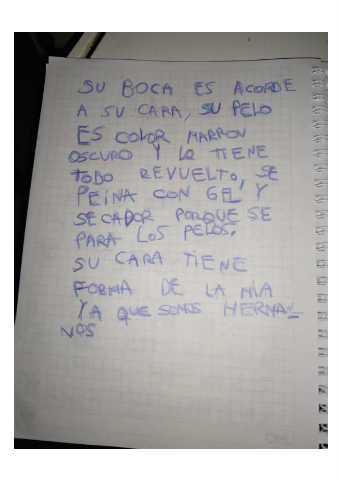 SU BOCA ES ACORDE
A SU CARA, SU PELO
ES COLOR MARRON
OSCURO Y LO TIENE
TODO REVUELTO, SE
PEINA CON GEL Y
SECADOR PORQUE SE
PARA LOS PELOS.
SU CARA TIENE
FORMA DE LA MIA
YA QUE SOMOS HERMA_
NOS